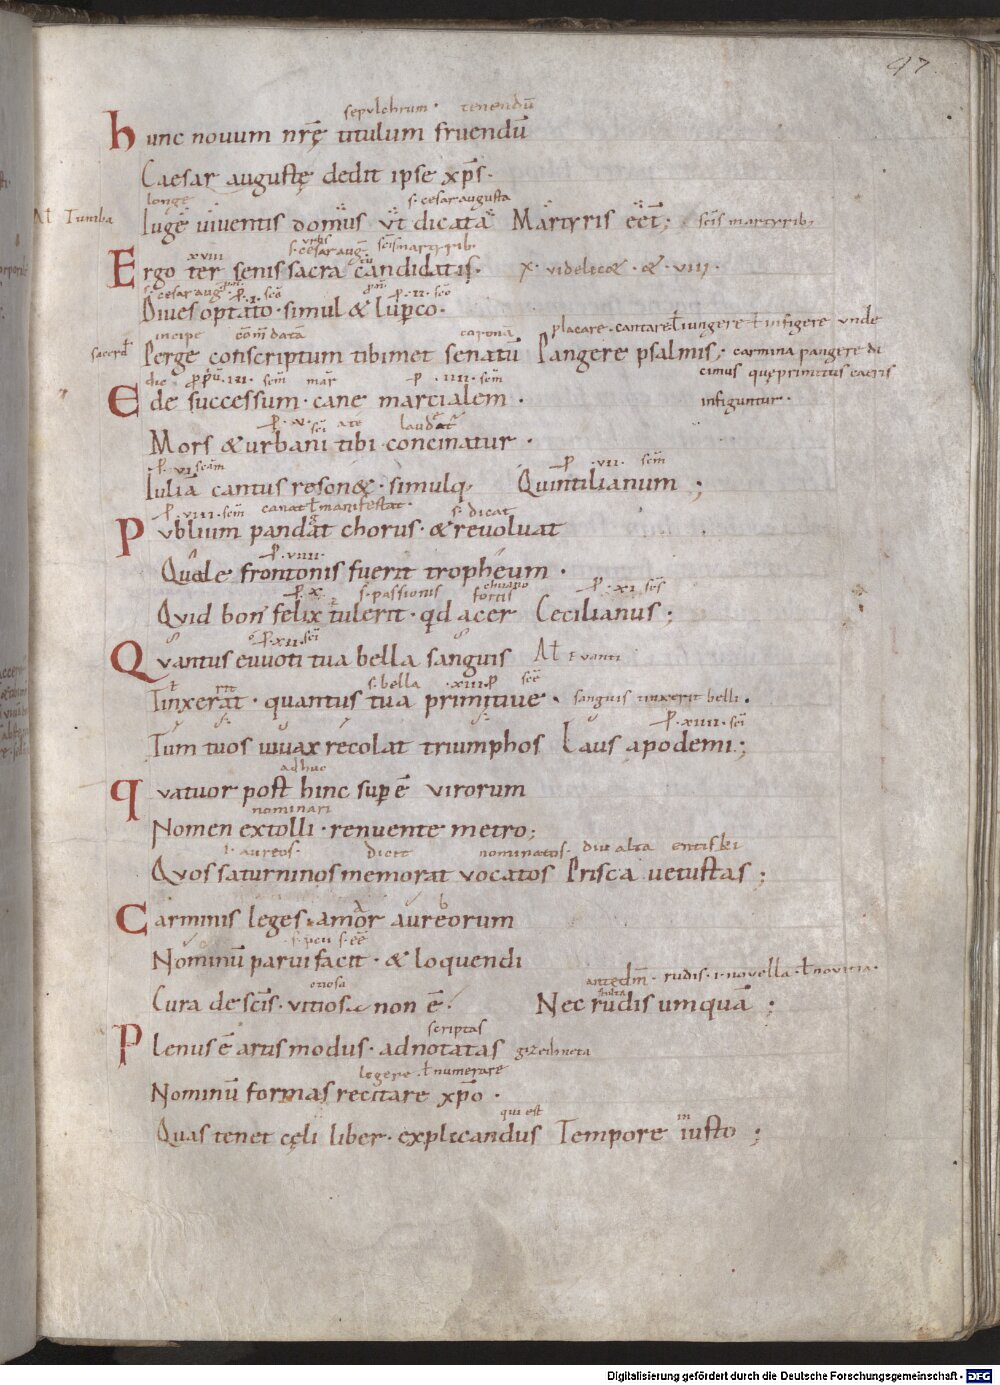 97
sepulchrum · tenendū
hunc nouum nr̄ę titulum fruendū
Caesar augustę dedit ipse xp̄s ·
longe s· cesar augusta
Iuge uiuentis domus ut dicata Martyris eēt; scīs martyrib;
At Tumba
xviii s· cesar aug urbs scīs martyrib
Ergo ter senis sacra candidatis · x · videlicet · & · viii ·
s· cesar aug p̄ · i · scē p̄ · ii · scē
Diues optato · simul & luperco ·
incipe com̄datā corona placare · cantare ł iungere ł infigere unde
Perge conscriptum tibimet senatū Pangere psalmis; carmina pangere di
cimus quę primitus caeris
infiguntur ·
dic iii · scm̄ mar p̄ · iiii · scm̄
Ede successum · cane marcialem ·
p̄ · v · scī laudat̄
Mors & urbani tibi concinatur ·
p̄ · vi scām p̄ · vii · scm̄
Iuliā cantus resonet · simulq; Quintilianum ;
p̄ · viii · scm̄ canat ł manifestat · s· dicat
Publium pandat chorus · & reuoluat
p̄ · viiii ·
Quale frontonis fuerit tropheum ·
p̄ · x · s· passionis fortis p̄ · xi scs̄
Quid bon' felix tulerit · qd acer Cecilianus ;
p̄ · xii · scī
Quantus euuoti tua bella sanguis At Euanti
s· bella · xiii · p̄ scē
Tinxerat · quantus tua primitiue · sanguis tinxerit belli ·
p̄ · xiiii · scī
Tum tuos uiuax recolat triumphos Laus apodemi ;
adhuc
quatuor post hinc sup ē virorum
nominari
Nomen extolli · renuente metro ;
i· aureos · dicit nominatos · diu alta
Quos saturninos memorat vocatos Prisca uetustas ;
Carminis leges · amor aureorum
s· pen s· eē
Nominū parui facit · & loquendi
otiosa rudis · i · novella · ł novitia ·
Cura de scīs · vitiosa non ē · Nec rudis umquā ;
scriptas
Plenus ē artis modus · adnotatas
legere · ł numerare
Nominū formas recitare xp̄o ·
qui est in
Quas tenet cęli liber · explicandus Tempore iusto ;
Digitalisierung gefördert durch die Deutsche Forschungsgemeinschaft - DFG